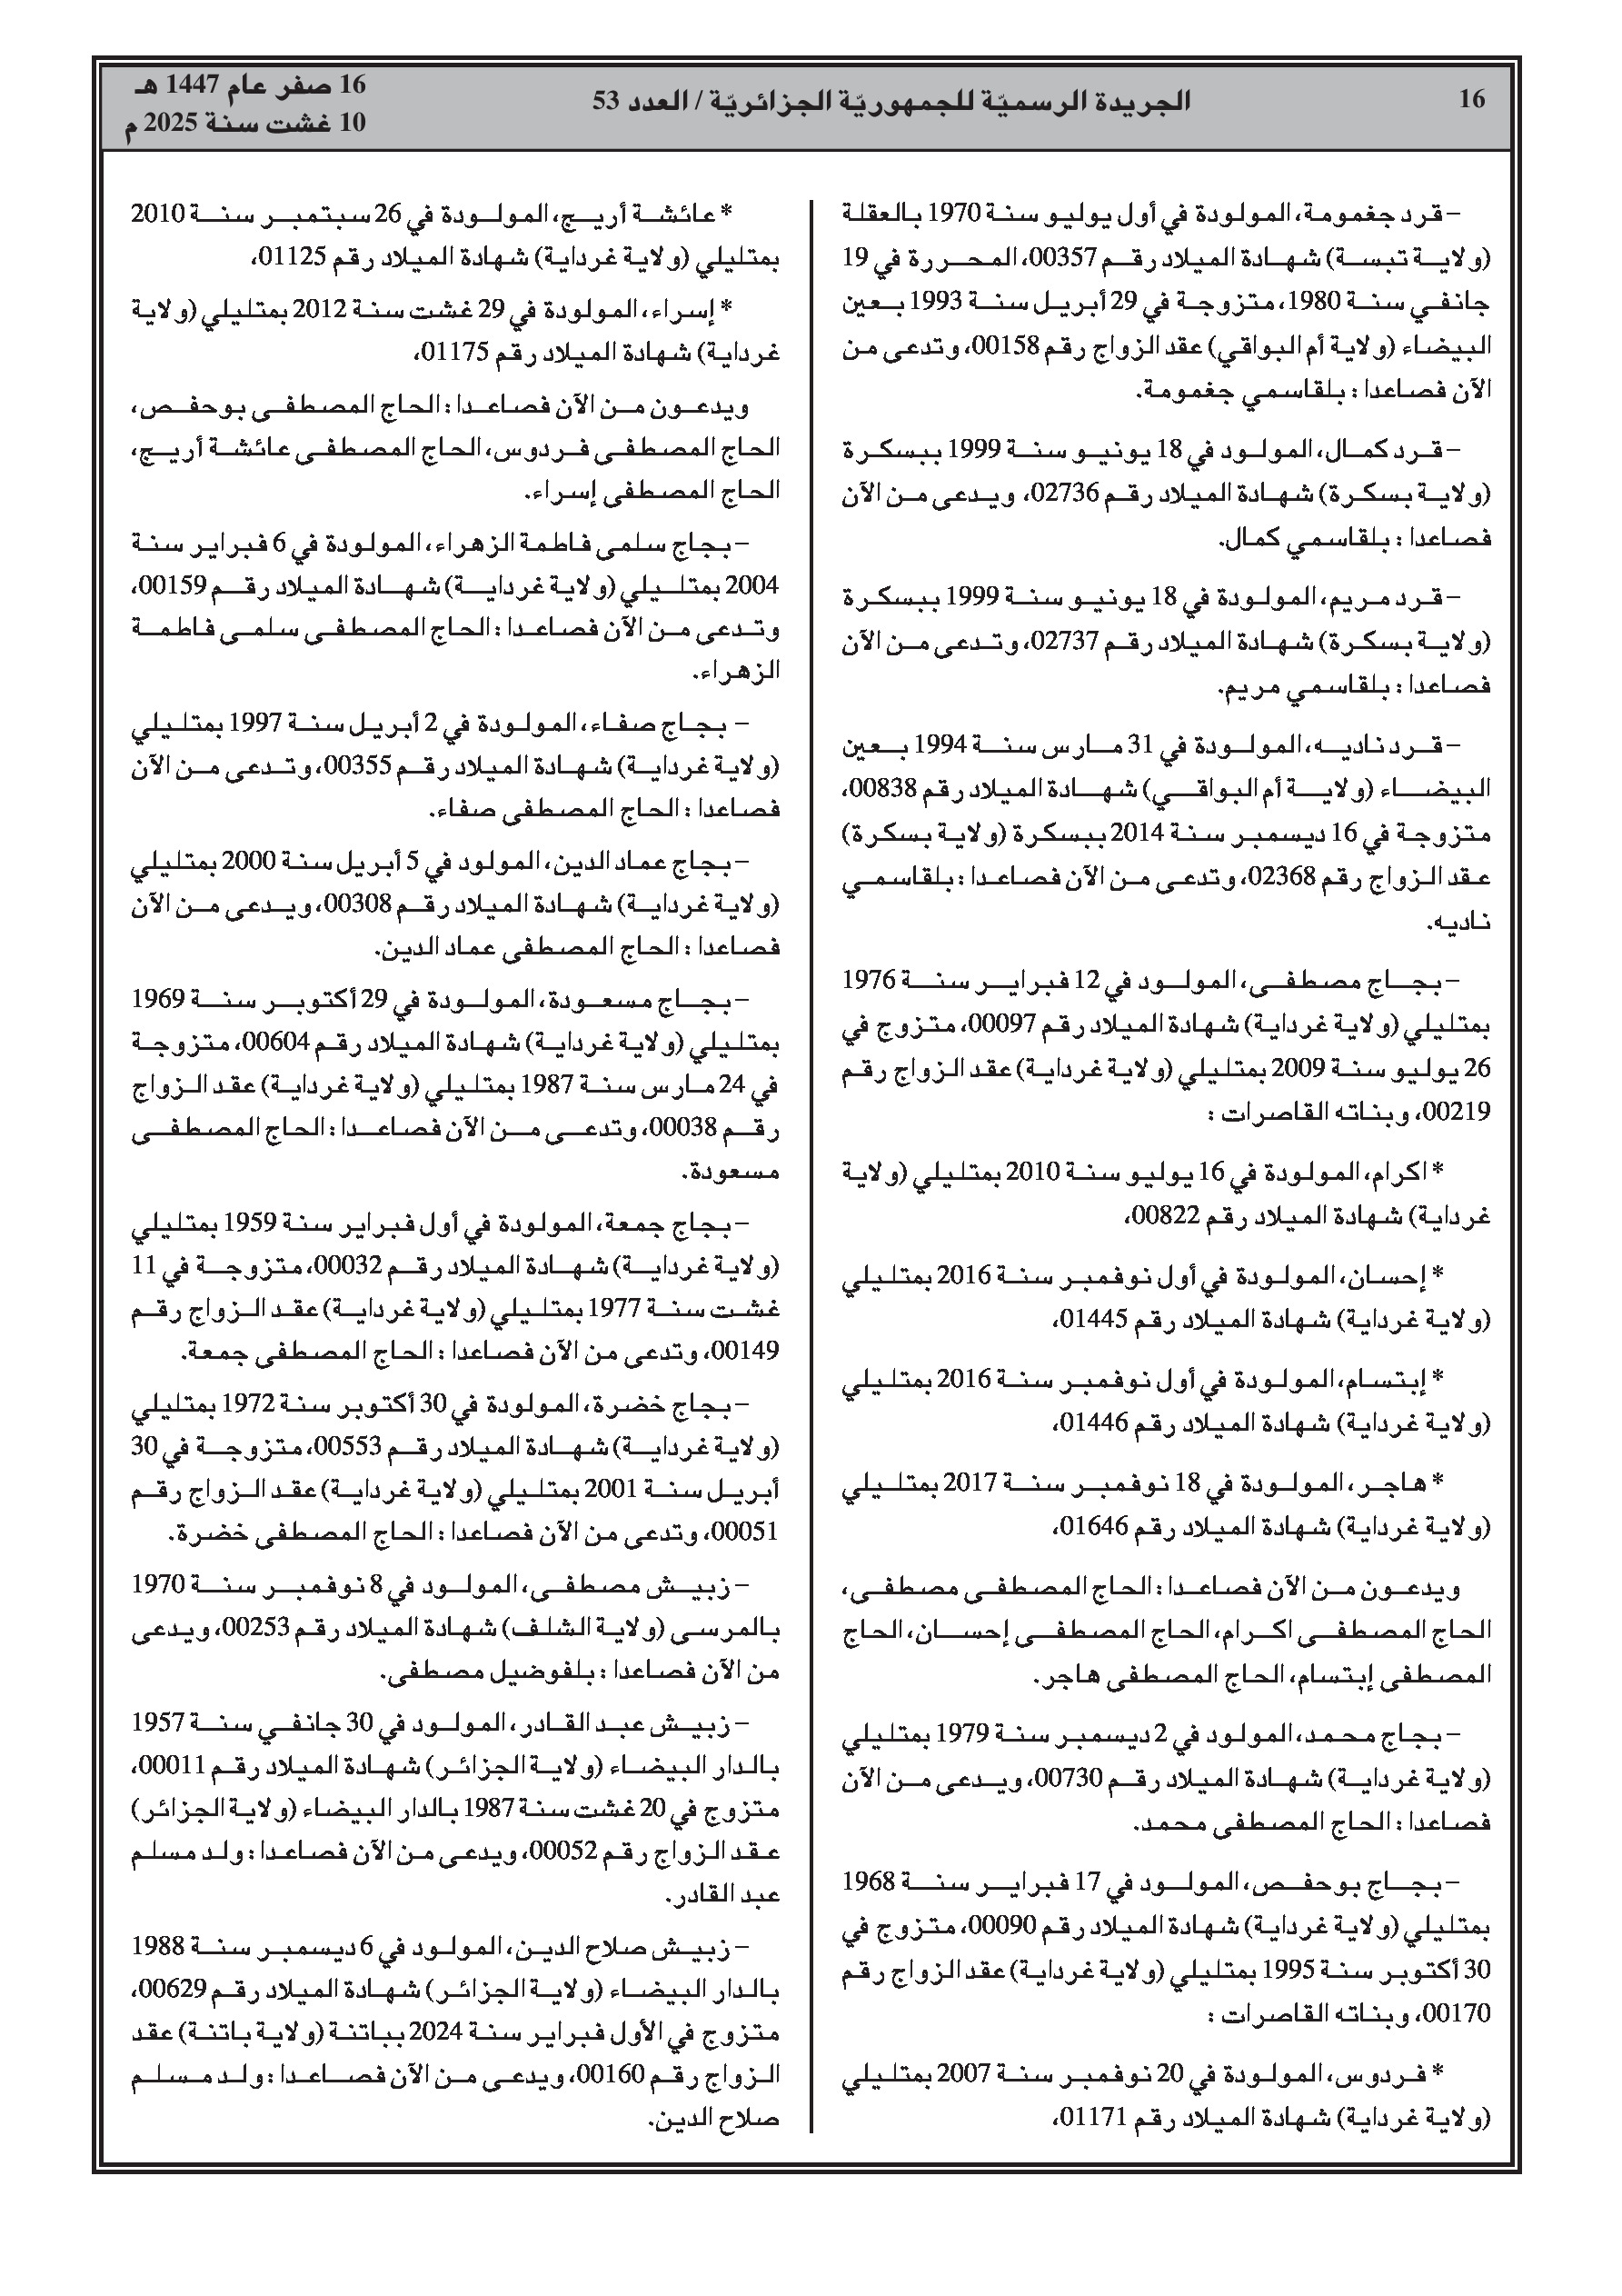 16
الجريدة الرسميّة للجمهوريّة الجزائريّة / العدد 53
16 صفر عام 1447 هـ
10 غشت سنة 2025 م
– قرد جغمومة، المولودة في أول يوليو سنة 1970 بالعقلة
(ولاية تبسة) شهادة الميلاد رقم 00357، المحررة في 19
جانفي سنة 1980، متزوجة في 29 أبريل سنة 1993 بعين
البيضاء (ولاية أم البواقي) عقد الزواج رقم 00158، وتدعى من
الآن فصاعدا : بلقاسمي جغمومة.
– قرد كمال، المولود في 18 يونيو سنة 1999 ببسكرة
(ولاية بسكرة) شهادة الميلاد رقم 02736، ويدعى من الآن
فصاعدا : بلقاسمي كمال.
– قرد مريم، المولودة في 18 يونيو سنة 1999 ببسكرة
(ولاية بسكرة) شهادة الميلاد رقم 02737، وتدعى من الآن
فصاعدا : بلقاسمي مريم.
– قرد ناديه، المولودة في 31 مارس سنة 1994 بعين
البيضاء (ولاية أم البواقي) شهادة الميلاد رقم 00838،
متزوجة في 16 ديسمبر سنة 2014 ببسكرة (ولاية بسكرة)
عقد الزواج رقم 02368، وتدعى من الآن فصاعدا : بلقاسمي
ناديه.
– بجاج مصطفى، المولود في 12 فبراير سنة 1976
بمتليلي (ولاية غرداية) شهادة الميلاد رقم 00097، متزوج في
26 يوليو سنة 2009 بمتليلي (ولاية غرداية) عقد الزواج رقم
00219، وبناته القاصرات :
* اكرام، المولودة في 16 يوليو سنة 2010 بمتليلي (ولاية
غرداية) شهادة الميلاد رقم 00822،
* إحسان، المولودة في أول نوفمبر سنة 2016 بمتليلي
(ولاية غرداية) شهادة الميلاد رقم 01445،
* إبتسام، المولودة في أول نوفمبر سنة 2016 بمتليلي
(ولاية غرداية) شهادة الميلاد رقم 01446،
* هاجر، المولودة في 18 نوفمبر سنة 2017 بمتليلي
(ولاية غرداية) شهادة الميلاد رقم 01646،
ويدعون من الآن فصاعدا : الحاج المصطفى مصطفى،
الحاج المصطفى اكرام، الحاج المصطفى إحسان، الحاج
المصطفى إبتسام، الحاج المصطفى هاجر.
– بجاج محمد، المولود في 2 ديسمبر سنة 1979 بمتليلي
(ولاية غرداية) شهادة الميلاد رقم 00730، ويدعى من الآن
فصاعدا : الحاج المصطفى محمد.
– بجاج بوحفص، المولود في 17 فبراير سنة 1968
بمتليلي (ولاية غرداية) شهادة الميلاد رقم 00090، متزوج في
30 أكتوبر سنة 1995 بمتليلي (ولاية غرداية) عقد الزواج رقم
00170، وبناته القاصرات :
* فردوس، المولودة في 20 نوفمبر سنة 2007 بمتليلي
(ولاية غرداية) شهادة الميلاد رقم 01171،
* عائشة أريج، المولودة في 26 سبتمبر سنة 2010
بمتليلي (ولاية غرداية) شهادة الميلاد رقم 01125،
* إسراء، المولودة في 29 غشت سنة 2012 بمتليلي (ولاية
غرداية) شهادة الميلاد رقم 01175،
ويدعون من الآن فصاعدا : الحاج المصطفى بوحفص،
الحاج المصطفى فردوس، الحاج المصطفى عائشة أريج،
الحاج المصطفى إسراء.
– بجاج سلمى فاطمة الزهراء، المولودة في 6 فبراير سنة
2004 بمتليلي (ولاية غرداية) شهادة الميلاد رقم 00159،
وتدعى من الآن فصاعدا : الحاج المصطفى سلمى فاطمة
الزهراء.
– بجاج صفاء، المولودة في 2 أبريل سنة 1997 بمتليلي
(ولاية غرداية) شهادة الميلاد رقم 00355، وتدعى من الآن
فصاعدا : الحاج المصطفى صفاء.
– بجاج عماد الدين، المولود في 5 أبريل سنة 2000 بمتليلي
(ولاية غرداية) شهادة الميلاد رقم 00308، ويدعى من الآن
فصاعدا : الحاج المصطفى عماد الدين.
– بجاج مسعودة، المولودة في 29 أكتوبر سنة 1969
بمتليلي (ولاية غرداية) شهادة الميلاد رقم 00604، متزوجة
في 24 مارس سنة 1987 بمتليلي (ولاية غرداية) عقد الزواج
رقم 00038، وتدعى من الآن فصاعدا : الحاج المصطفى
مسعودة.
– بجاج جمعة، المولودة في أول فبراير سنة 1959 بمتليلي
(ولاية غرداية) شهادة الميلاد رقم 00032، متزوجة في 11
غشت سنة 1977 بمتليلي (ولاية غرداية) عقد الزواج رقم
00149، وتدعى من الآن فصاعدا : الحاج المصطفى جمعة.
– بجاج خضرة، المولودة في 30 أكتوبر سنة 1972 بمتليلي
(ولاية غرداية) شهادة الميلاد رقم 00553، متزوجة في 30
أبريل سنة 2001 بمتليلي (ولاية غرداية) عقد الزواج رقم
00051، وتدعى من الآن فصاعدا : الحاج المصطفى خضرة.
– زبيش مصطفى، المولود في 8 نوفمبر سنة 1970
بالمرسى (ولاية الشلف) شهادة الميلاد رقم 00253، ويدعى
من الآن فصاعدا : بلفوضيل مصطفى.
– زبيش عبد القادر، المولود في 30 جانفي سنة 1957
بالدار البيضاء (ولاية الجزائر) شهادة الميلاد رقم 00011،
متزوج في 20 غشت سنة 1987 بالدار البيضاء (ولاية الجزائر)
عقد الزواج رقم 00052، ويدعى من الآن فصاعدا : ولد مسلم
عبد القادر.
– زبيش صلاح الدين، المولود في 6 ديسمبر سنة 1988
بالدار البيضاء (ولاية الجزائر) شهادة الميلاد رقم 00629،
متزوج في الأول فبراير سنة 2024 بباتنة (ولاية باتنة) عقد
الزواج رقم 00160، ويدعى من الآن فصاعدا : ولد مسلم
صلاح الدين.